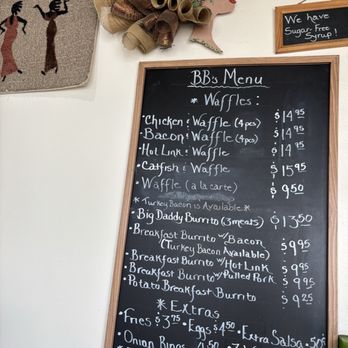 We have
Sugar-Free
Syrup!
BB's Menu
* Waffles:
• Chicken & Waffle (4pcs) $14.95
• Bacon & Waffle (4pcs) $14.95
• Hot Link & Waffle $14.95
• Catfish & Waffle $15.95
• Waffle (a la carte) $9.50
* Turkey Bacon is Available *
• Big Daddy Burrito (3 meats) $13.50
• Breakfast Burrito w/ Bacon $9.95
(Turkey Bacon Available)
• Breakfast Burrito w/ Hot Link $9.95
• Breakfast Burrito w/ Pulled Pork $9.95
• Potato Breakfast Burrito $9.25
* Extras
• Fries $3.75 • Eggs $4.50 • Extra Salsa .50¢
• Onion Rings 4.50